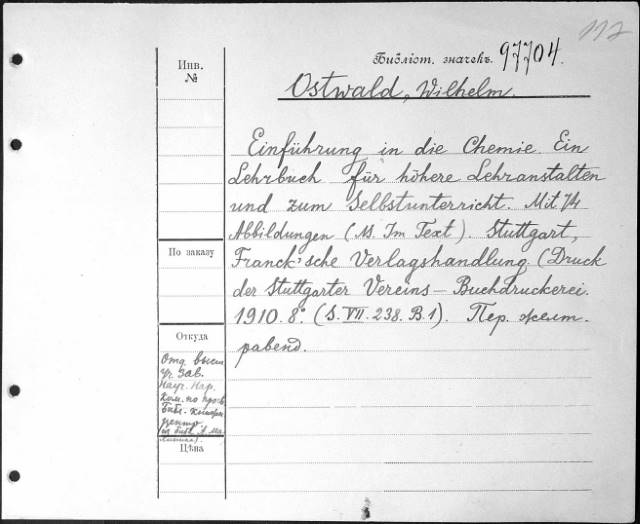 112
Инв.
№
Библіот. значекъ. 97704.
Ostwald, Wilhelm.
Einführung in die Chemie. Ein
Lehrbuch für höhere Lehranstalten
und zum Selbstunterricht. Mit 74
Abbildungen (AS. Im Text). Stuttgart,
Franck'sche Verlagshandlung. (Druck
der Stuttgarter Vereins-Buchdruckerei.
1910. 8°. (S. VII. 238. B. 1). Пер. желт.
равенд.
По заказу
Откуда
Отд. высш
уч. зав.
Науч. Нар.
ком. по просв
Библ.
центр.
Цѣна